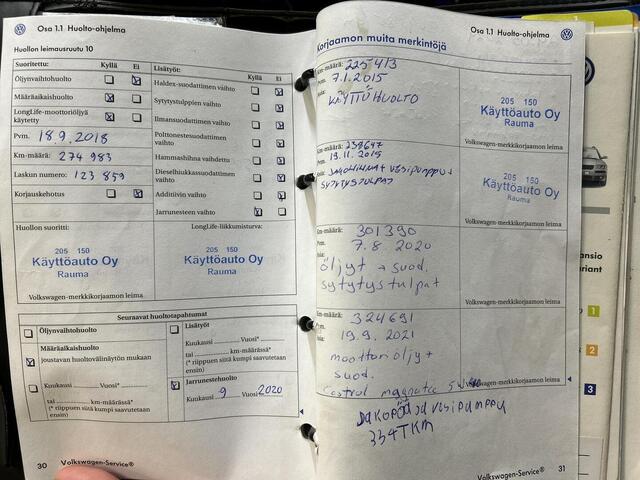 Osa 1.1 Huolto-ohjelma
Huollon leimausruutu 10
Suoritettu: Kyllä Ei
Öljynvaihtohuolto
Määräaikaishuolto
LongLife-moottoriöljyä käytetty
Pvm. 18.9.2018
Km-määrä: 274 983
Laskun numero: 123 859
Korjauskehotus
Lisätyöt: Kyllä Ei
Haldex-suodattimen vaihto
Sytytystulppien vaihto
Ilmansuodattimen vaihto
Polttonestesuodattimen vaihto
Hammashihna vaihdettu
Dieselhiukkassuodattimen vaihto
Additiivin vaihto
Jarrunesteen vaihto
Huollon suoritti:
205 150
Käyttöauto Oy
Rauma
Volkswagen-merkkikorjaamon leima
LongLife-liikkumisturva:
205 150
Käyttöauto Oy
Rauma
Volkswagen-merkkikorjaamon leima
Seuraavat huoltotapahtumat
Öljynvaihtohuolto
Määräaikaishuolto
joustavan huoltovälinäytön mukaan
Kuukausi Vuosi*
tai km-määrässä*
(* riippuen siitä kumpi saavutetaan ensin)
Lisätyöt
Kuukausi Vuosi*
tai km-määrässä*
(* riippuen siitä kumpi saavutetaan ensin)
Jarrunestehuolto
Kuukausi 9 Vuosi 2020
30 Volkswagen-Service®
Osa 1.1 Huolto-ohjelma
Korjaamon muita merkintöjä
Km-määrä: 225413
Pvm. 7.1.2015
KÄYTTÖHUOLTO
205 150
Käyttöauto Oy
Rauma
Volkswagen-merkkikorjaamon leima
Km-määrä: 238647
Pvm. 19.11.2015
JAKOHIHNA + VESIPUMPPU +
SYTYTYSTULPAT
205 150
Käyttöauto Oy
Rauma
Volkswagen-merkkikorjaamon leima
Km-määrä: 301390
Pvm. 7.8.2020
öljyt + suod.
sytytystulpat
Volkswagen-merkkikorjaamon leima
Km-määrä: 324691
Pvm. 19.9.2021
moottoriöljy +
suod.
Castrol magnatec 5w40
merkkikorjaamon leima
JAKOPÄÄ JA VESIPUMPPU
334TKM
Volkswagen-Service® 31
ansio
ariant
1
2
3